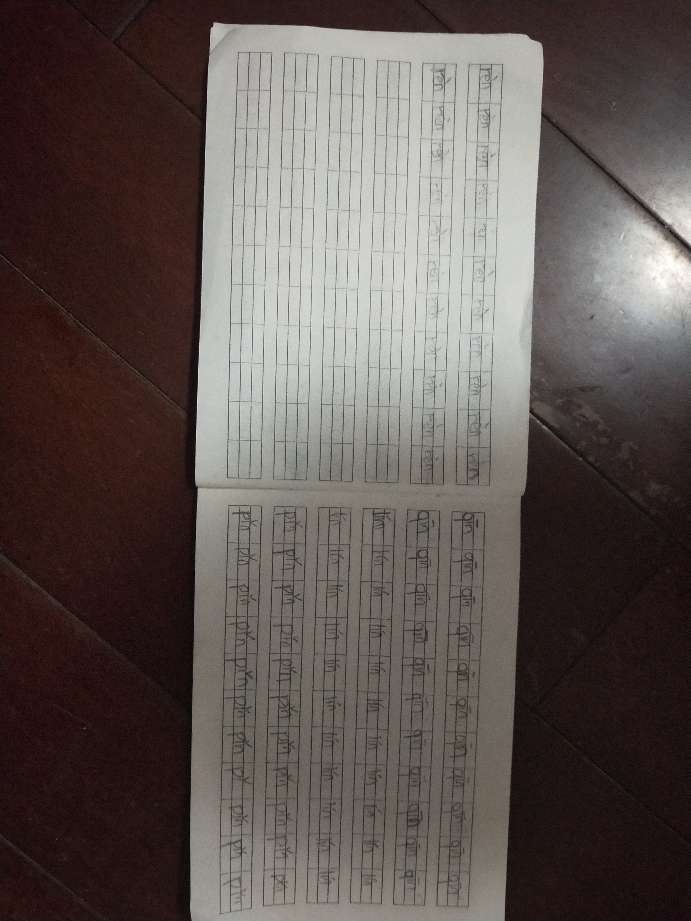 rèn rèn rèn rèn rèn rèn rèn rèn rèn rèn rèn
rèn rèn rèn rèn rèn rèn rèn rèn rèn rèn rèn
qīn qīn qīn qīn qīn qīn qīn qīn qīn qīn qīn
qīn qīn qīn qīn qīn qīn qīn qīn qīn qīn qīn
lín lín lín lín lín lín lín lín lín lín lín
lín lín lín lín lín lín lín lín lín lín lín
pǐn pǐn pǐn pǐn pǐn pǐn pǐn pǐn pǐn pǐn pǐn
pǐn pǐn pǐn pǐn pǐn pǐn pǐn pǐn pǐn pǐn pǐn